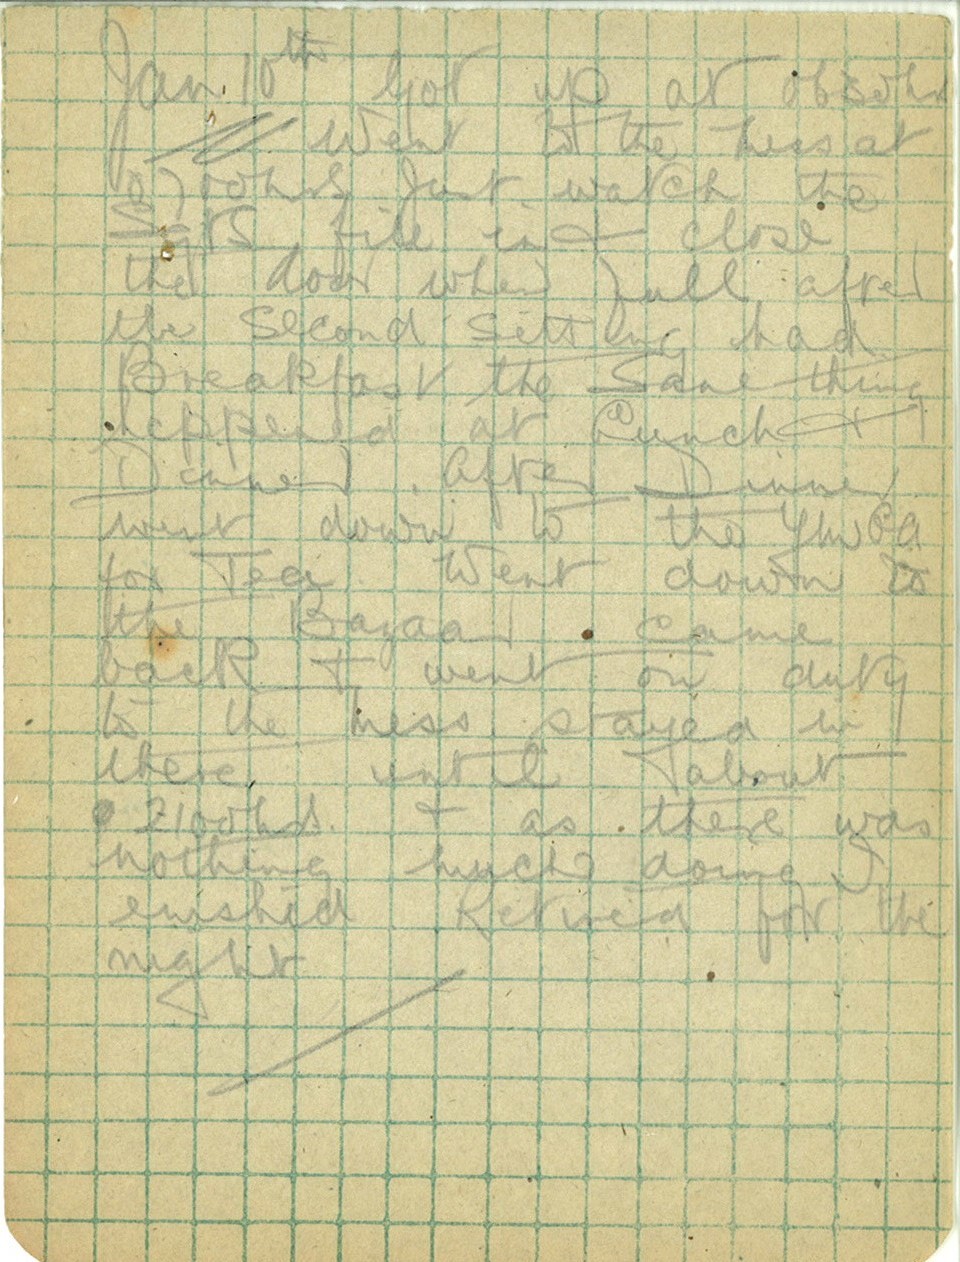 Jan 10th Got up at 0630hrs
Went to the mess at
0700hrs Just watch the
Sgts file in & close
the door when full, after
the Second Sitting had
Breakfast the Same thing
happened at Lunch &
Dinner. After Dinner
went down to the YMCA
for Tea. Went down to
the Bazaar came
back & went on duty
to the mess stayed in
there until about
2100hrs. & as there was
nothing much doing I
Retired for the
night